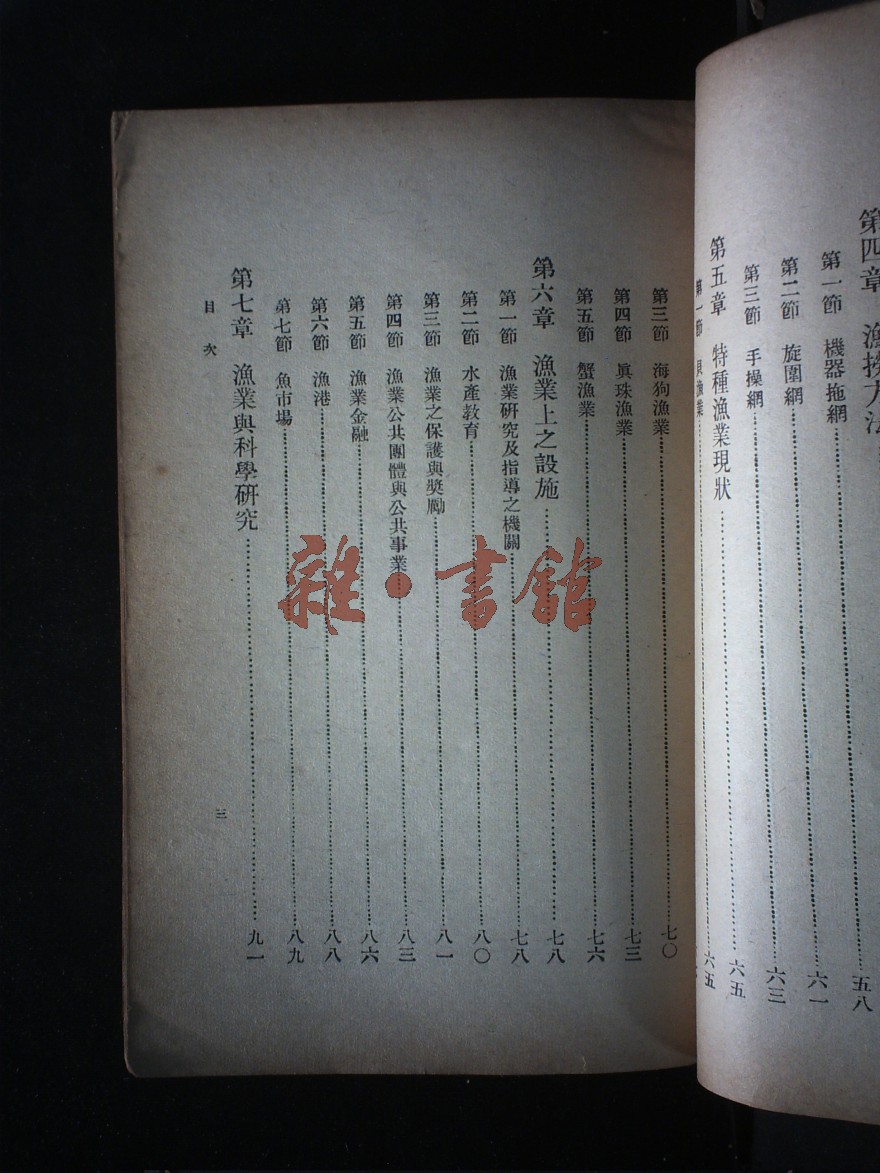 第四章 漁撈方法 五八
第一節 機器拖網……六一
第二節 旋圍網……六三
第三節 手操網……六五
第五章 特種漁業現狀……六五
第一節 貝漁業……
第三節 海狗漁業……七〇
第四節 眞珠漁業……七三
第五節 蟹漁業……七六
第六章 漁業上之設施……七八
第一節 漁業硏究及指導之機關……七八
第二節 水產敎育……八〇
第三節 漁業之保護與獎勵……八一
第四節 漁業公共團體與公共事業……八三
第五節 漁業金融……八六
第六節 漁港……八八
第七節 魚市場……八九
第七章 漁業與科學硏究……九一
目次
三
雜·書館